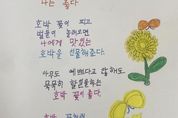 나는 좋다.
호박 꽃이 피고
벌들이 놀러오면
나에게 맛있는
호박을 선물해준다.
사람들 예쁘다고 안해도
묵묵히 할일을하는
호박 꽃이 좋다.
호박